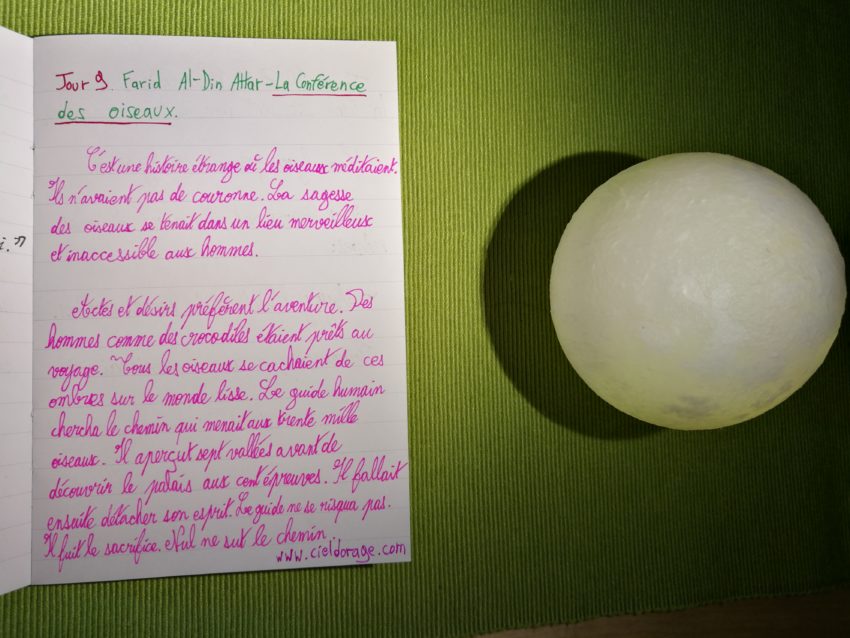 Jour 9. Farid Al-Din Attar - La Conférence
des oiseaux.
C'est une histoire étrange où les oiseaux méditaient.
Ils n'avaient pas de couronne. La sagesse
des oiseaux se tenait dans un lieu merveilleux
et inaccessible aux hommes.
Actes et désirs préfèrent l'aventure. Des
hommes comme des crocodiles étaient prêts au
voyage. Tous les oiseaux se cachaient de ces
ombres sur le monde lisse. Le guide humain
chercha le chemin qui menait aux trente mille
oiseaux. Il aperçut sept vallées avant de
découvrir le palais aux cent épreuves. Il fallait
ensuite détacher son esprit. Le guide ne se risqua pas.
Il fuit le sacrifice. Nul ne sut le chemin.
www.cieldorage.com